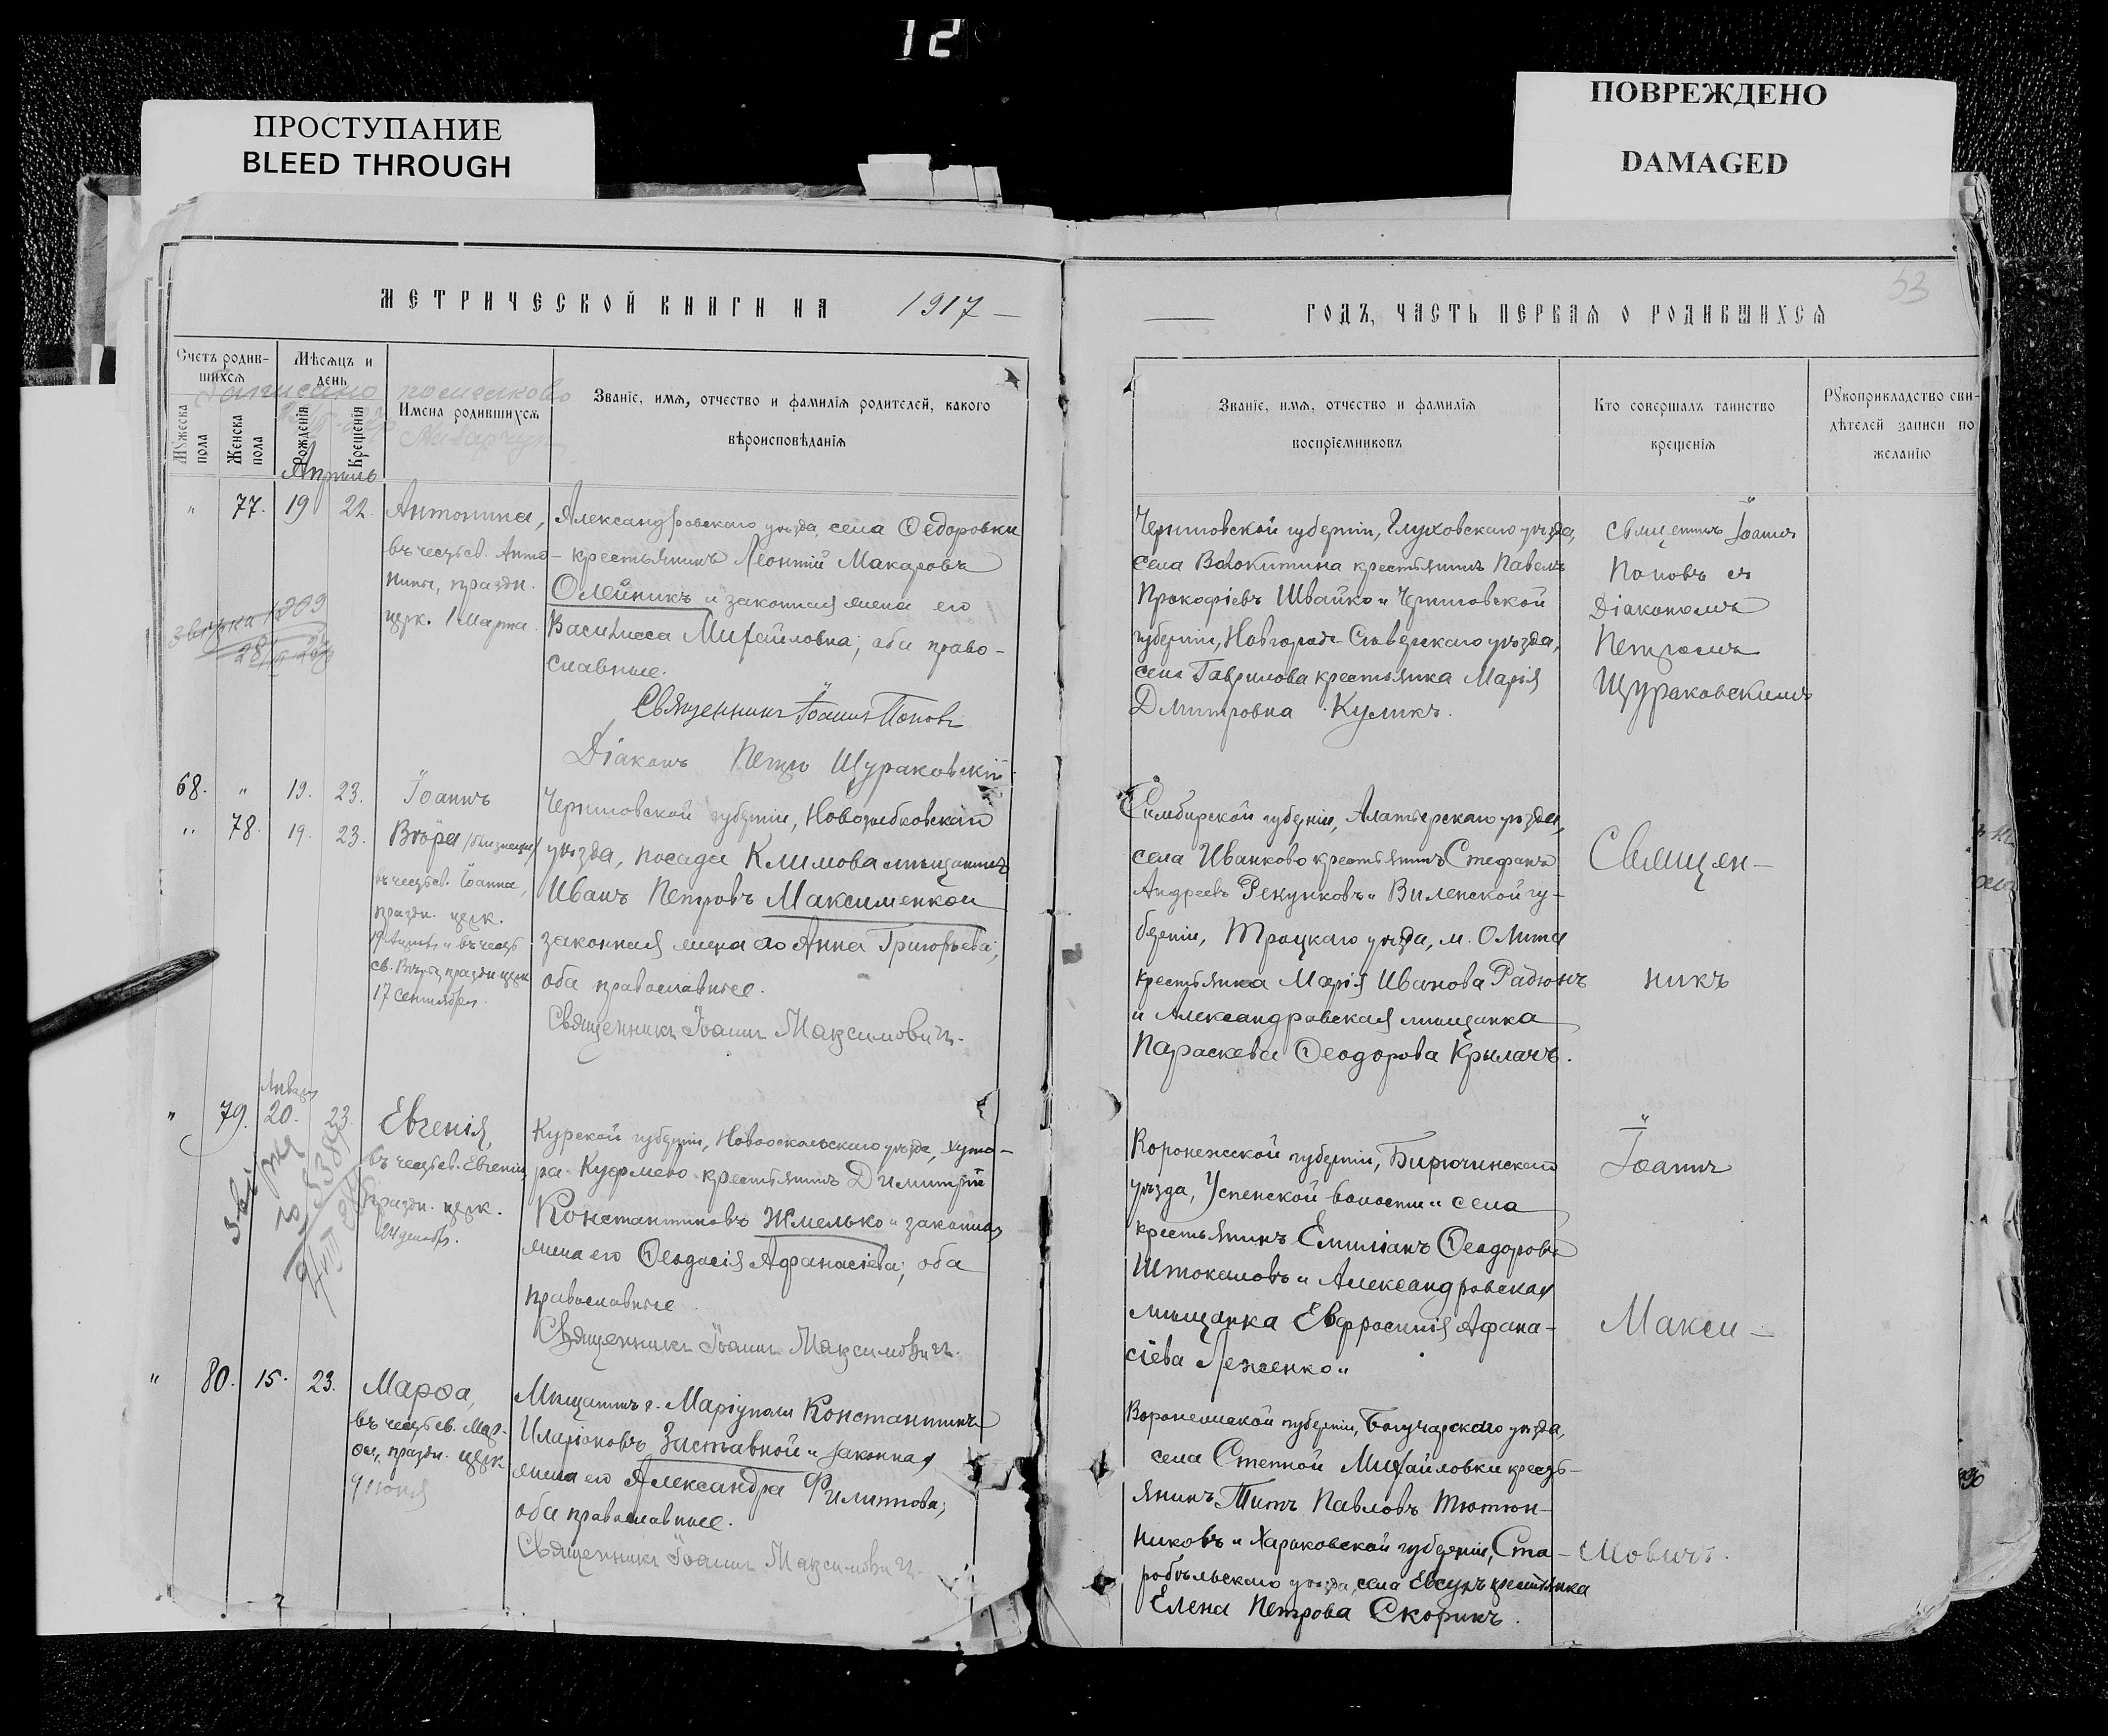 12
ПРОСТУПАНИЕ
BLEED THROUGH
ПОВРЕЖДЕНО
DAMAGED
МЕТРИЧЕСКОЙ КНИГИ НА 1917
Счетъ родив-
шихся
Мѣсяцъ и
день
Мужеска пола
Женска пола
Рожденія
Крещенія
Имена родившихся
Званіе, имя, отчество и фамилія родителей, какого
вѣроисповѣданія
Апрѣль
" 77. 19 22.
Антонина,
въ честь св. Анто-
нины, праздн.
церк. 1 марта.
Александровскаго уѣзда, села Ѳедоровки
крестьянинъ Леонтій Макаровъ
Олейникъ и законная жена его
Василисса Михайловна; оба право-
славные.
Священникъ Іоаннъ Поповъ
Діаконъ Петръ Щураковскій
68. " 19. 23. Іоаннъ
" 78. 19. 23. Вѣра /близнецы/
въ честь св. Іоанна,
праздн. церк.
и въ честь
св. Вѣры, праздн. церк.
17 сентября.
Черниговской губерніи, Новозыбковскаго
уѣзда, посада Климова мѣщанинъ
Иванъ Петровъ Максименко и
законная жена его Анна Григорьева;
оба православные.
Священникъ Іоаннъ Максимовичъ.
" 79. 20. 23.
Евгенія,
въ честь св. Евгеніи,
праздн. церк.
24 декабр.
Курской губерніи, Новооскольскаго уѣзда, хуто-
ра крестьянинъ Димитрій
Константиновъ Жмелько и законная
жена его Ѳеодосія Афанасіева; оба
православные.
Священникъ Іоаннъ Максимовичъ.
" 80. 15. 23.
Марѳа,
въ честь св. Мар-
ѳы, праздн. церк.
Мѣщанинъ г. Маріуполя Константинъ
Иларіоновъ Заставной и законная
жена его Александра Филиппова;
оба православные.
Священникъ Іоаннъ Максимовичъ.
53
ГОДЪ, ЧАСТЬ ПЕРВАЯ О РОДИВШИХСЯ
Званіе, имя, отчество и фамилія
воспріемниковъ
Кто совершалъ таинство
крещенія
Рукоприкладство сви-
дѣтелей записи по
желанію
Черниговской губерніи, Глуховскаго уѣзда,
села Волокитина крестьянинъ Павелъ
Прокофіевъ Швайко и Черниговской
губерніи, Новгородъ-Сѣверскаго уѣзда,
села Гаврилова крестьянка Марія
Дмитровна Куликъ.
Священникъ Іоаннъ
Поповъ съ
Діакономъ
Петромъ
Щураковскимъ
Симбирской губерніи, Алатырскаго уѣзда,
села Иваньково крестьянинъ Стефанъ
Андреевъ Рекунковъ и Виленской гу-
берніи, Троцкаго уѣзда, м. Олита
крестьянка Марія Иванова Радюнъ
и Александровская мѣщанка
Параскева Ѳеодорова Крылачъ.
Воронежской губерніи, Бирючинскаго
уѣзда, Успенской волости и села
крестьянинъ Емиліанъ Ѳеодоровъ
Штокаловъ и Александровская
мѣщанка Евфросинія Афана-
сіева Леженко.
Воронежской губерніи, Богучарскаго уѣзда,
села Степной Михайловки кресть-
янинъ Титъ Павловъ Тютюн-
никовъ и Харьковской губерніи, Ста-
робѣльскаго уѣзда, села Евсугъ крестьянка
Елена Петрова Скорикъ.
Священ-
никъ
Іоаннъ
Макси-
мовичъ.